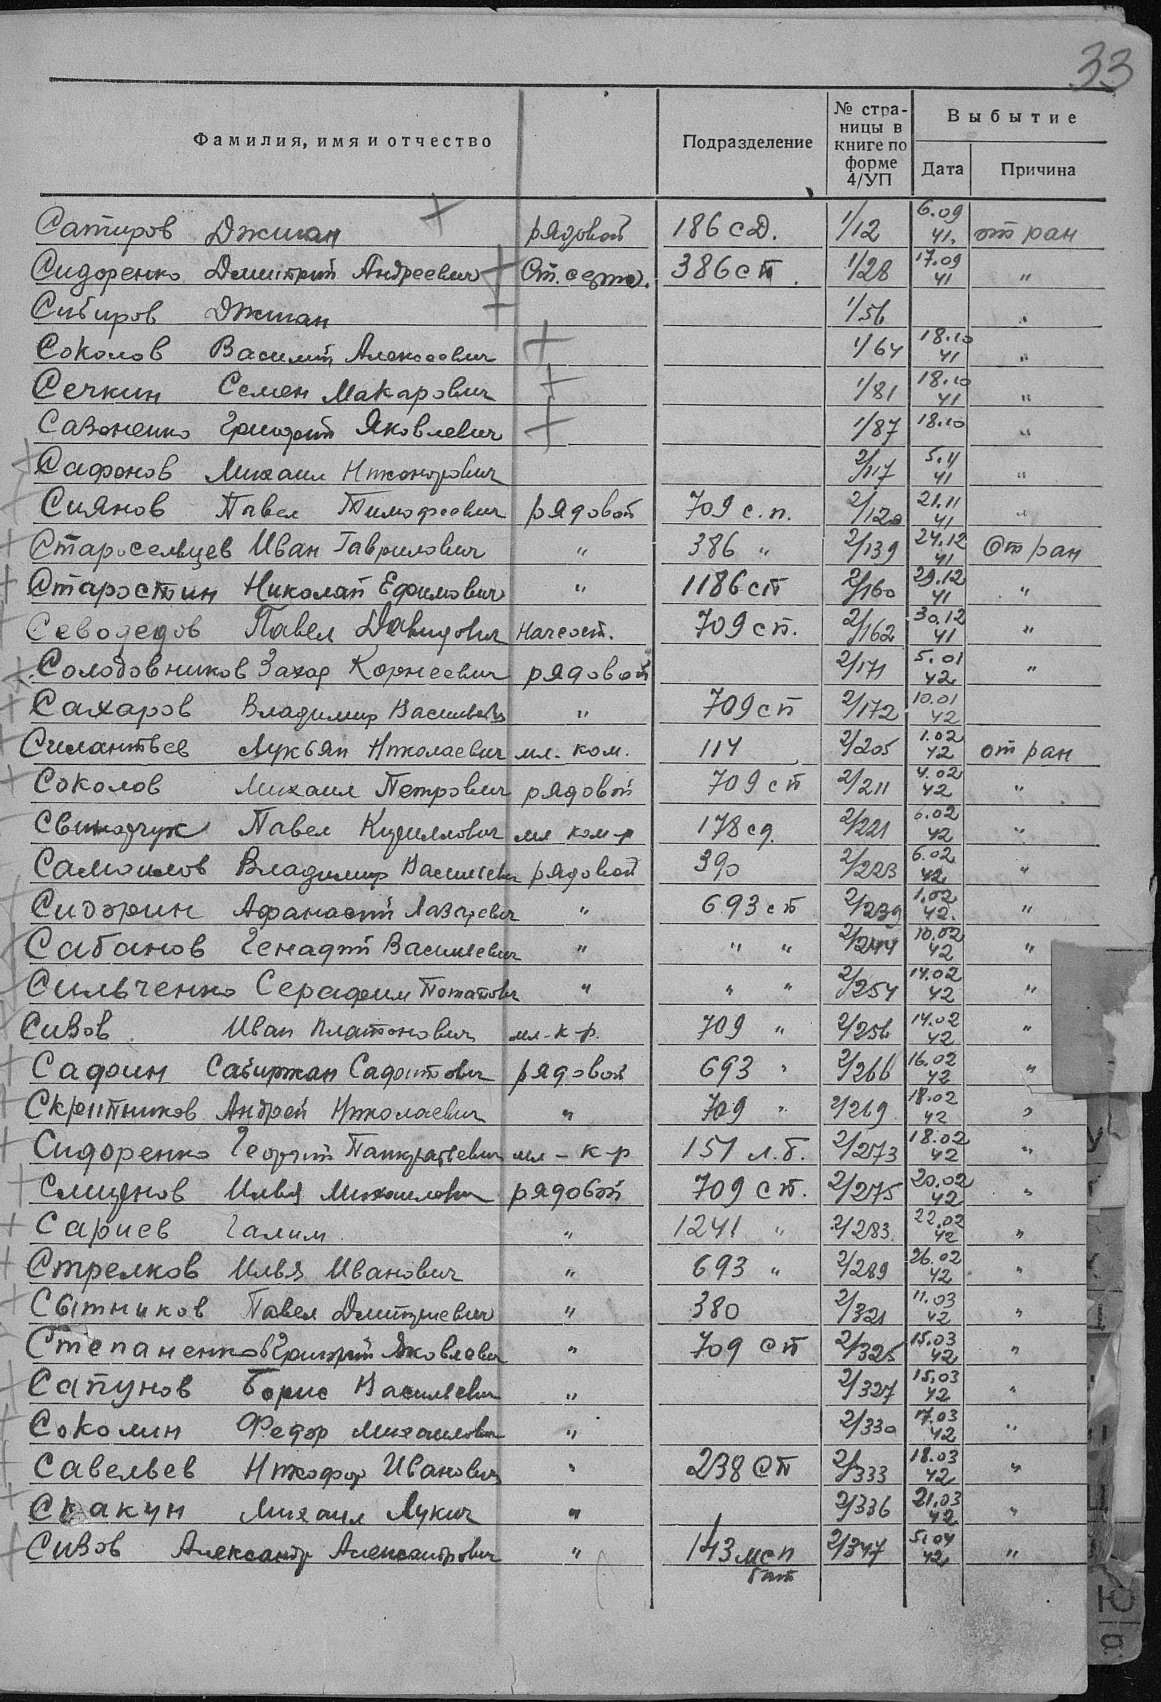 33
Фамилия, имя и отчество Подразделение № страницы в книге по форме 4/УП Выбытие Дата Причина
Сатиров Джиган рядовой 186 сд. 1/12 6.09 41. от ран
Сидоренко Дмитрий Андреевич Ст. серж. 386 сп 1/28 17.09 41 "
Сибиров Джиган 1/56 "
Соколов Василий Алексеевич 1/64 18.10 41 "
Сечкин Семен Макарович 1/81 18.10 41 "
Сазоненко Григорий Яковлевич 1/87 18.10 "
Сафонов Михаил Никонорович 2/117 5.11 41 "
Сиянов Павел Тимофеевич рядовой 709 с.п. 2/120 21.11 41 "
Старосельцев Иван Гаврилович " 386 " 2/139 24.12 41 От ран
Старостин Николай Ефимович " 1186 сп 2/160 29.12 41 "
Севодедов Павел Давидович Начсост. 709 сп. 2/162 30.12 41 "
Солодовников Захар Корнеевич рядовой 2/171 5.01 42 "
Сахаров Владимир Васильевич " 709 сп 2/172 10.01 42
Силантьев Лукьян Николаевич мл. ком. 114 2/205 1.02 42 от ран
Соколов Михаил Петрович рядовой 709 сп 2/211 4.02 42 "
Свинадчук Павел Кириллович мл ком-р 178 сд. 2/221 6.02 42 "
Самойлов Владимир Васильевич рядовой 390 2/223 6.02 42 "
Сидорин Афанасий Лазаревич " 693 сп 2/239 1.02 42. "
Сабанов Генадий Васильевич " " " 2/244 10.02 42 "
Сильченко Серафим Потапович " " " 2/254 14.02 42 "
Сизов Иван Платонович мл-к-р. 709 " 2/256 14.02 42 "
Садоин Сабиржан Садоитович рядовой 693 " 2/266 16.02 42 "
Скрипников Андрей Николаевич " 709 " 2/269 18.02 42 "
Сидоренко Георгий Панкратьевич мл-к-р 151 л.б. 2/273 18.02 42 "
Смирнов Илья Михайлович рядовой 709 сп. 2/275 20.02 42 "
Сариев Галим " 1241 " 2/283 22.02 42 "
Стрелков Илья Иванович " 693 " 2/289 26.02 42 "
Сытников Павел Дмитриевич " 380 2/321 11.03 42 "
Степаненков Григорий Яковлевич " 709 сп 2/325 15.03 42 "
Сапунов Борис Васильевич " 2/327 15.03 42 "
Соколин Федор Михайлович " 2/330 17.03 42 "
Савельев Никофор Иванович " 238 сп 2/333 18.03 42 "
Скакун Михаил Лукич " 2/336 21.03 42 "
Сизов Александр Александрович " 143 мсп бат 2/347 5.04 42 "